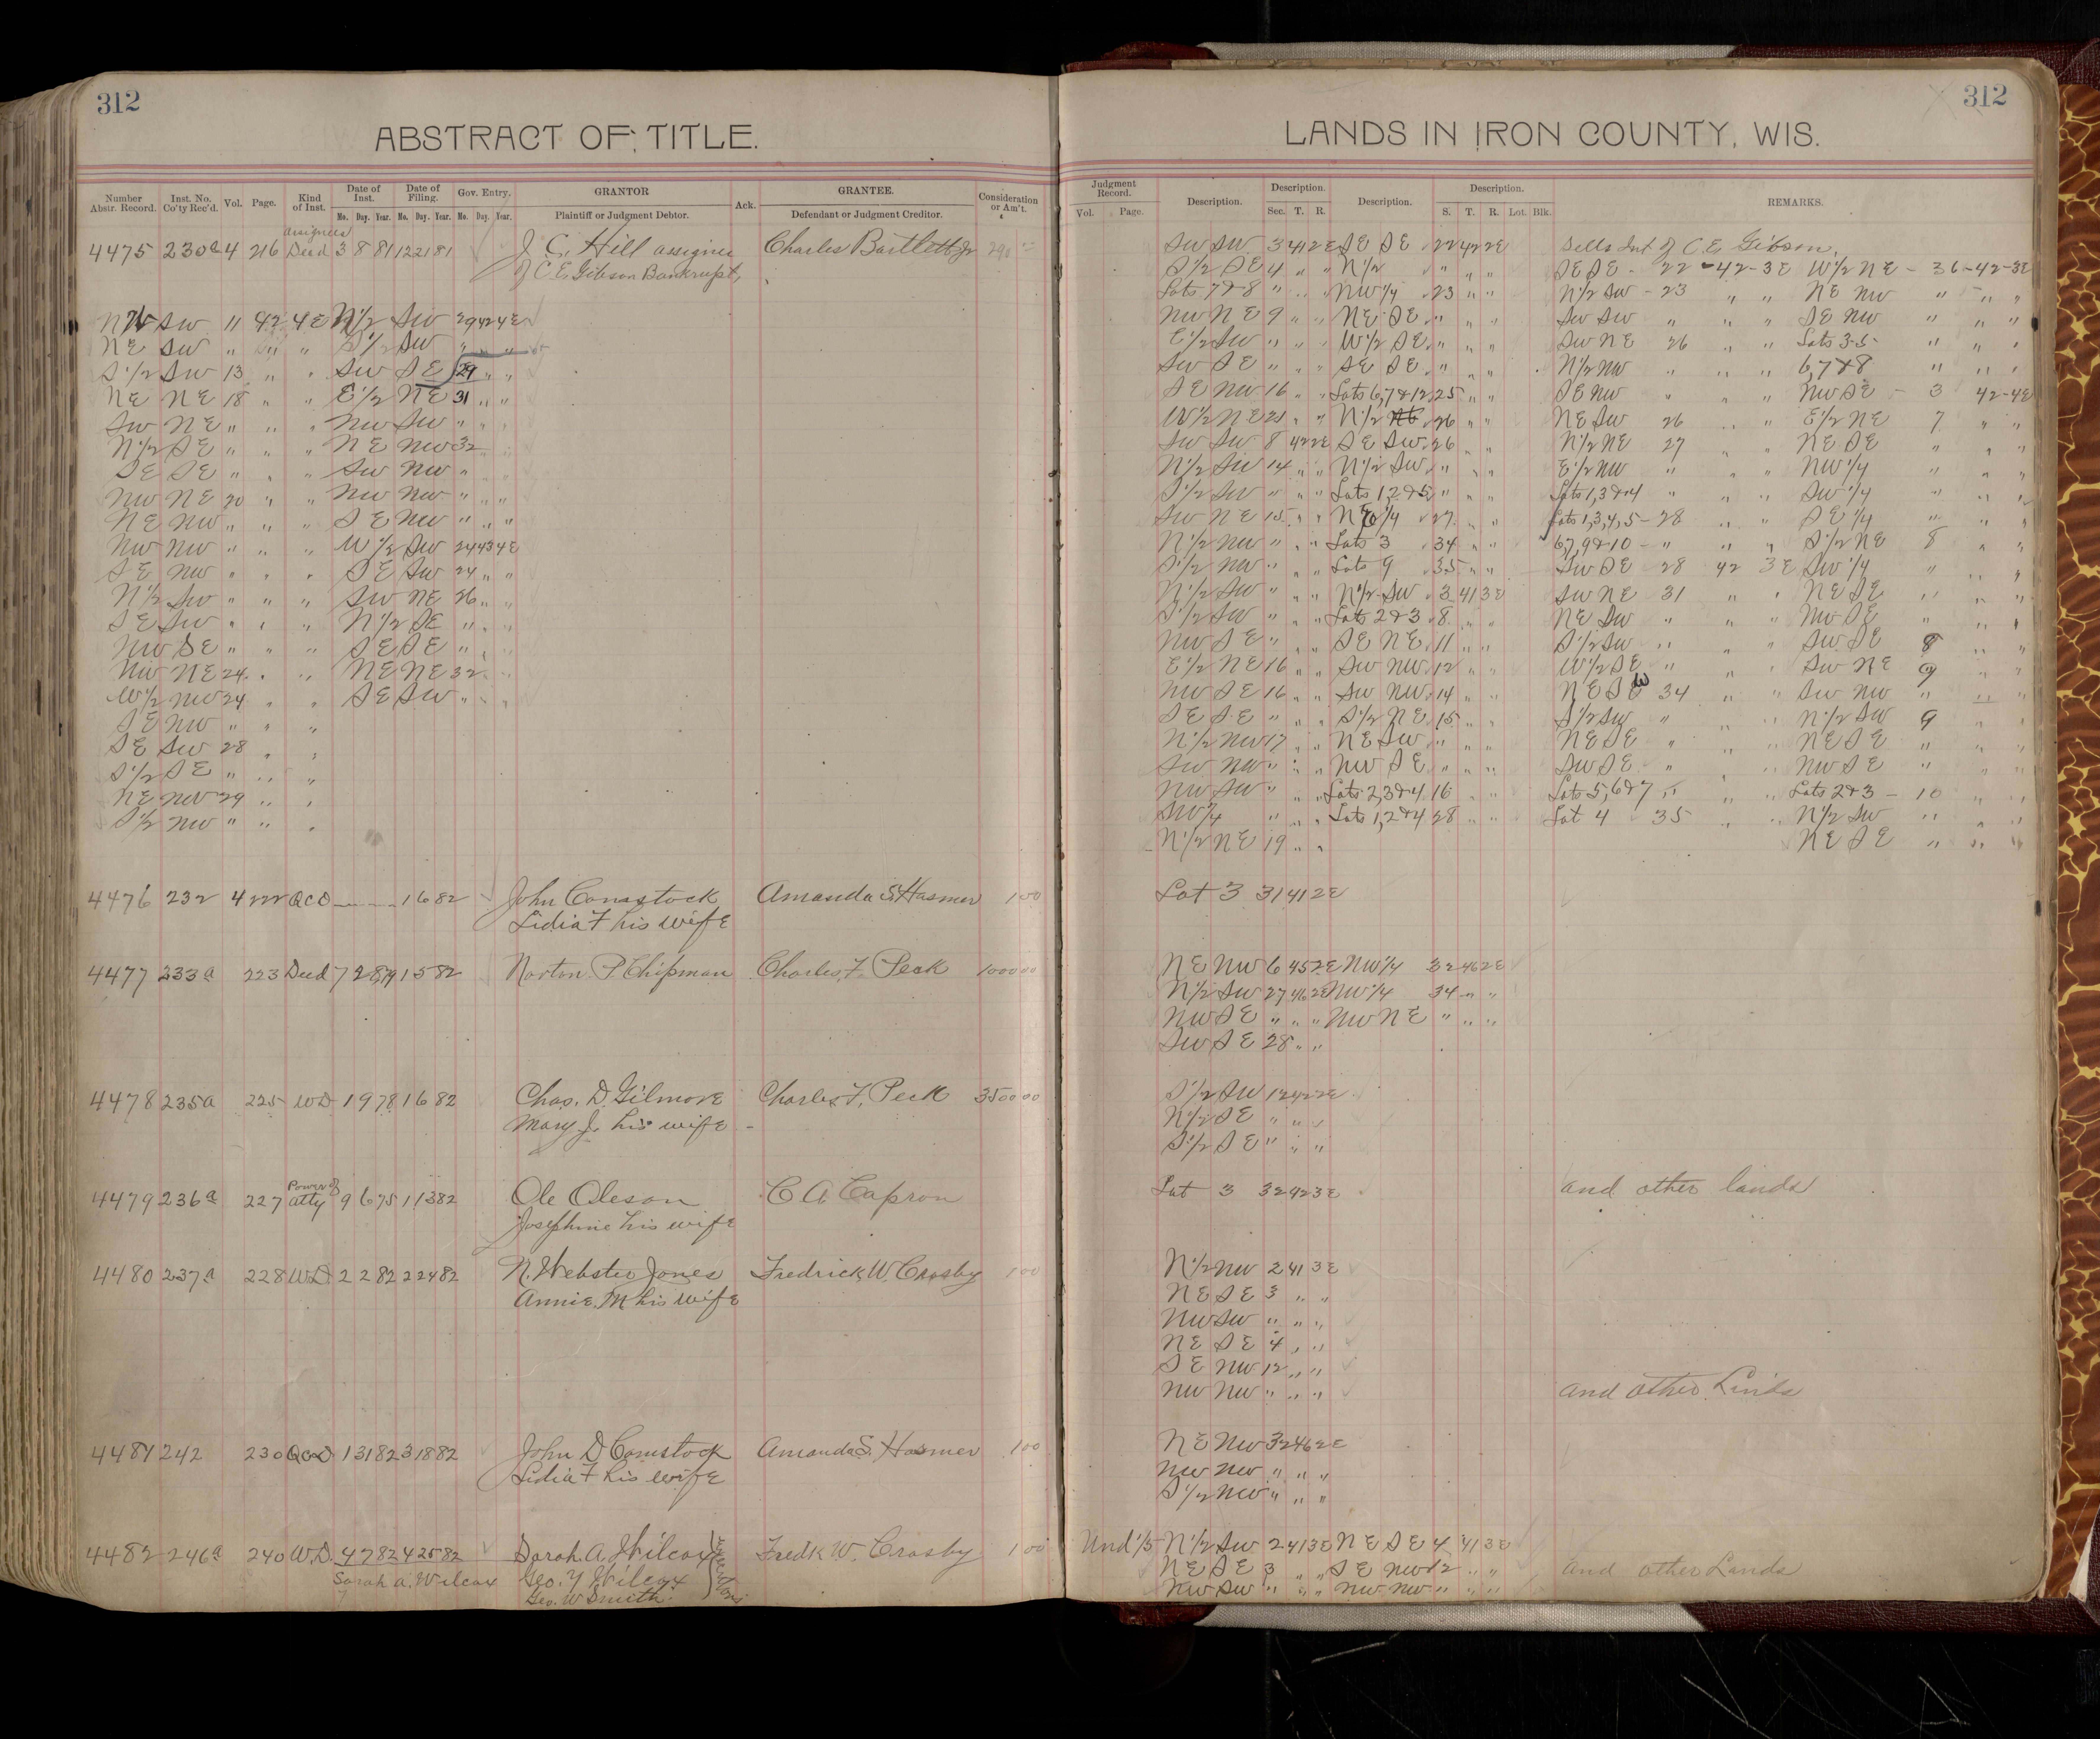 312
ABSTRACT OF TITLE.
Number Abstr. Record. Inst. No. Co'ty Rec'd. Vol. Page. Kind of Inst. Date of Inst. Mo. Day. Year. Date of Filing. Mo. Day. Year. Gov. Entry. Mo. Day. Year. GRANTOR Plaintiff or Judgment Debtor. Ack. GRANTEE. Defendant or Judgment Creditor. Consideration or Am't.
assignees
4475 230a 4 216 Deed 3 8 81 12 21 81 J. C. Hill assignee Charles Bartlett Jr 290
of C.E. Gibson Bankrupt,
NW SW 11 42 4E N1/2 SW 29 42 4E
NE SW " " " S1/2 SW " " "
S1/2 SW 13 " " SW SE 29 " "
NE NE 18 " " E1/2 NE 31 " "
SW NE " " " NW SW " " "
N1/2 SE " " " NE NW 32 " "
SE SE " " " SW NW " " "
NW NE 20 " " NW NW " " "
NE NW " " " SE NW " " "
NW NW " " " W1/2 SW 24 43 4E
SE NW " " " SE SW 24 " "
N1/2 SW " " " SW NE 26 " "
SE SW " " " N1/2 SE " " "
NW SE " " " SE SE " " "
NW NE 24 " " NE NE 32 " "
W1/2 NW 24 " " SE SW " " "
SE NW " " "
SE SW 28 " "
S1/2 SE " " "
NE NW 29 " "
S1/2 NW " " "
4476 232 4 222 QCD 1 6 82 John Comstock Amanda S. Hasmer 1 00
Lidia F his wife
4477 233a 223 Deed 7 28 79 1 5 82 Norton P. Chipman Charles F. Peck 1000 00
4478 235a 225 WD 1 9 78 1 6 82 Chas. D. Gilmore Charles F. Peck 3500 00
Mary J. his wife
Power of
4479 236a 227 atty 9 6 75 1 13 82 Ole Oleson C A Capron
Josephine his wife
4480 237a 228 W.D. 2 2 82 2 24 82 N. Webster Jones Fredrick W. Crosby 1 00
Annie. M his wife
4481 242 230 QCD 1 31 82 3 18 82 John D Comstock Amanda S. Hosmer 1 00
Lidia F his wife
4482 246a 240 W.D. 4 7 82 4 25 82 Sarah. A. Wilcox Fredk W. Crosby 1 00
Sarah A. Wilcox Geo. Y Wilcox
Geo. W Smith.
312
LANDS IN IRON COUNTY, WIS.
Judgment Record. Vol. Page. Description. Description. Sec. T. R. Description. Description. S. T. R. Lot. Blk. REMARKS.
SW SW 3 41 2E SE SE 22 42 2E Sells Int of C.E. Gibson,
S1/2 SE 4 " " N1/2 " " " SE SE - 22 - 42 - 3E W1/2 NE - 36 - 42 - 3E
Lots 7&8 " " " NW1/4 23 " " N1/2 SW - 23 " " NE NW " " "
NW NE 9 " " NE SE " " " SW SW " " " SE NW " " "
E1/2 SW " " " W1/2 SE " " " SW NE 26 " " Lots 3-5- " " "
SW SE " " " SE SE " " " N1/2 NW " " " 6,7&8 " " "
SE NW 16 " " Lots 6,7&12 25 " " SE NW " " " NW SE - 3 42-4E
W1/2 NE 21 " " N1/2 26 " " NE SW 26 " " E1/2 NE 7 " "
SW SW 8 42 2E SE SW 26 " " N1/2 NE 27 " " NE SE " " "
N1/2 SW 14 " " N1/2 SW " " " E1/2 NW " " " NW1/4 " " "
S1/2 SW " " " Lots 1,2&5 " " " Lots 1,3&4 " " " SW1/4 " " "
SW NE 15 " " NE1/4 27 " " Lots 1,3,4,5 - 28 " " SE1/4 " " "
N1/2 NW " " " Lots 3 34 " " 6,7,9&10 - " " " S1/2 NE 8 " "
S1/2 NW " " " Lots 9 35 " " SW SE 28 42 3E SW1/4 " " "
N1/2 SW " " " N1/2 SW 3 41 3E SW NE 31 " " NE SE " " "
S1/2 SW " " " Lots 2&3 8 " " NE SW " " " NW SE " " "
NW SE " " " SE NE 11 " " S1/2 SW " " " SW SE 8 " "
E1/2 NE 16 " " SW NW 12 " " W1/2 SE " " " SW NE 9 " "
NW SE 16 " " SW NW 14 " " NE SW 34 " " SW NW " " "
SE SE " " " S1/2 NE 15 " " S1/2 SW " " " N1/2 SW 9 " "
N1/2 NW 17 " " NE SW " " " NE SE " " " NE SE " " "
SW NW " " " NW SE " " " SW SE " " " NW SE " " "
NW SW " " " Lots 2,3&4 16 " " Lots 5,6&7 " " " Lots 2&3 - 10 " "
SW1/4 " " " Lots 1,2&4 28 " " Lot 4 35 " " N1/2 SW " " "
N1/2 NE 19 " " NE SE " " "
Lot 3 31 41 2E
NE NW 6 45 2E NW1/4 32 46 2E
N1/2 SW 27 46 2E NW1/4 34 " "
NW SE " " " NW NE " " "
SW SE 28 " "
S1/2 SW 12 42 2E
N1/2 SE " " "
S1/2 SE " " "
Lot 3 32 42 3E and other lands
N1/2 NW 2 41 3E
NE SE 3 " "
NW SW " " "
NE SE 4 " "
SE NW 12 " "
NW NW " " " and other Lands
NE NW 32 46 2E
NW NW " " "
S1/2 NW " " "
Und 1/5 N1/2 SW 2 41 3E NE SE 4 41 3E
NE SE 3 " " SE NW 12 " " and other Lands
NW SW " " " NW NW " " "